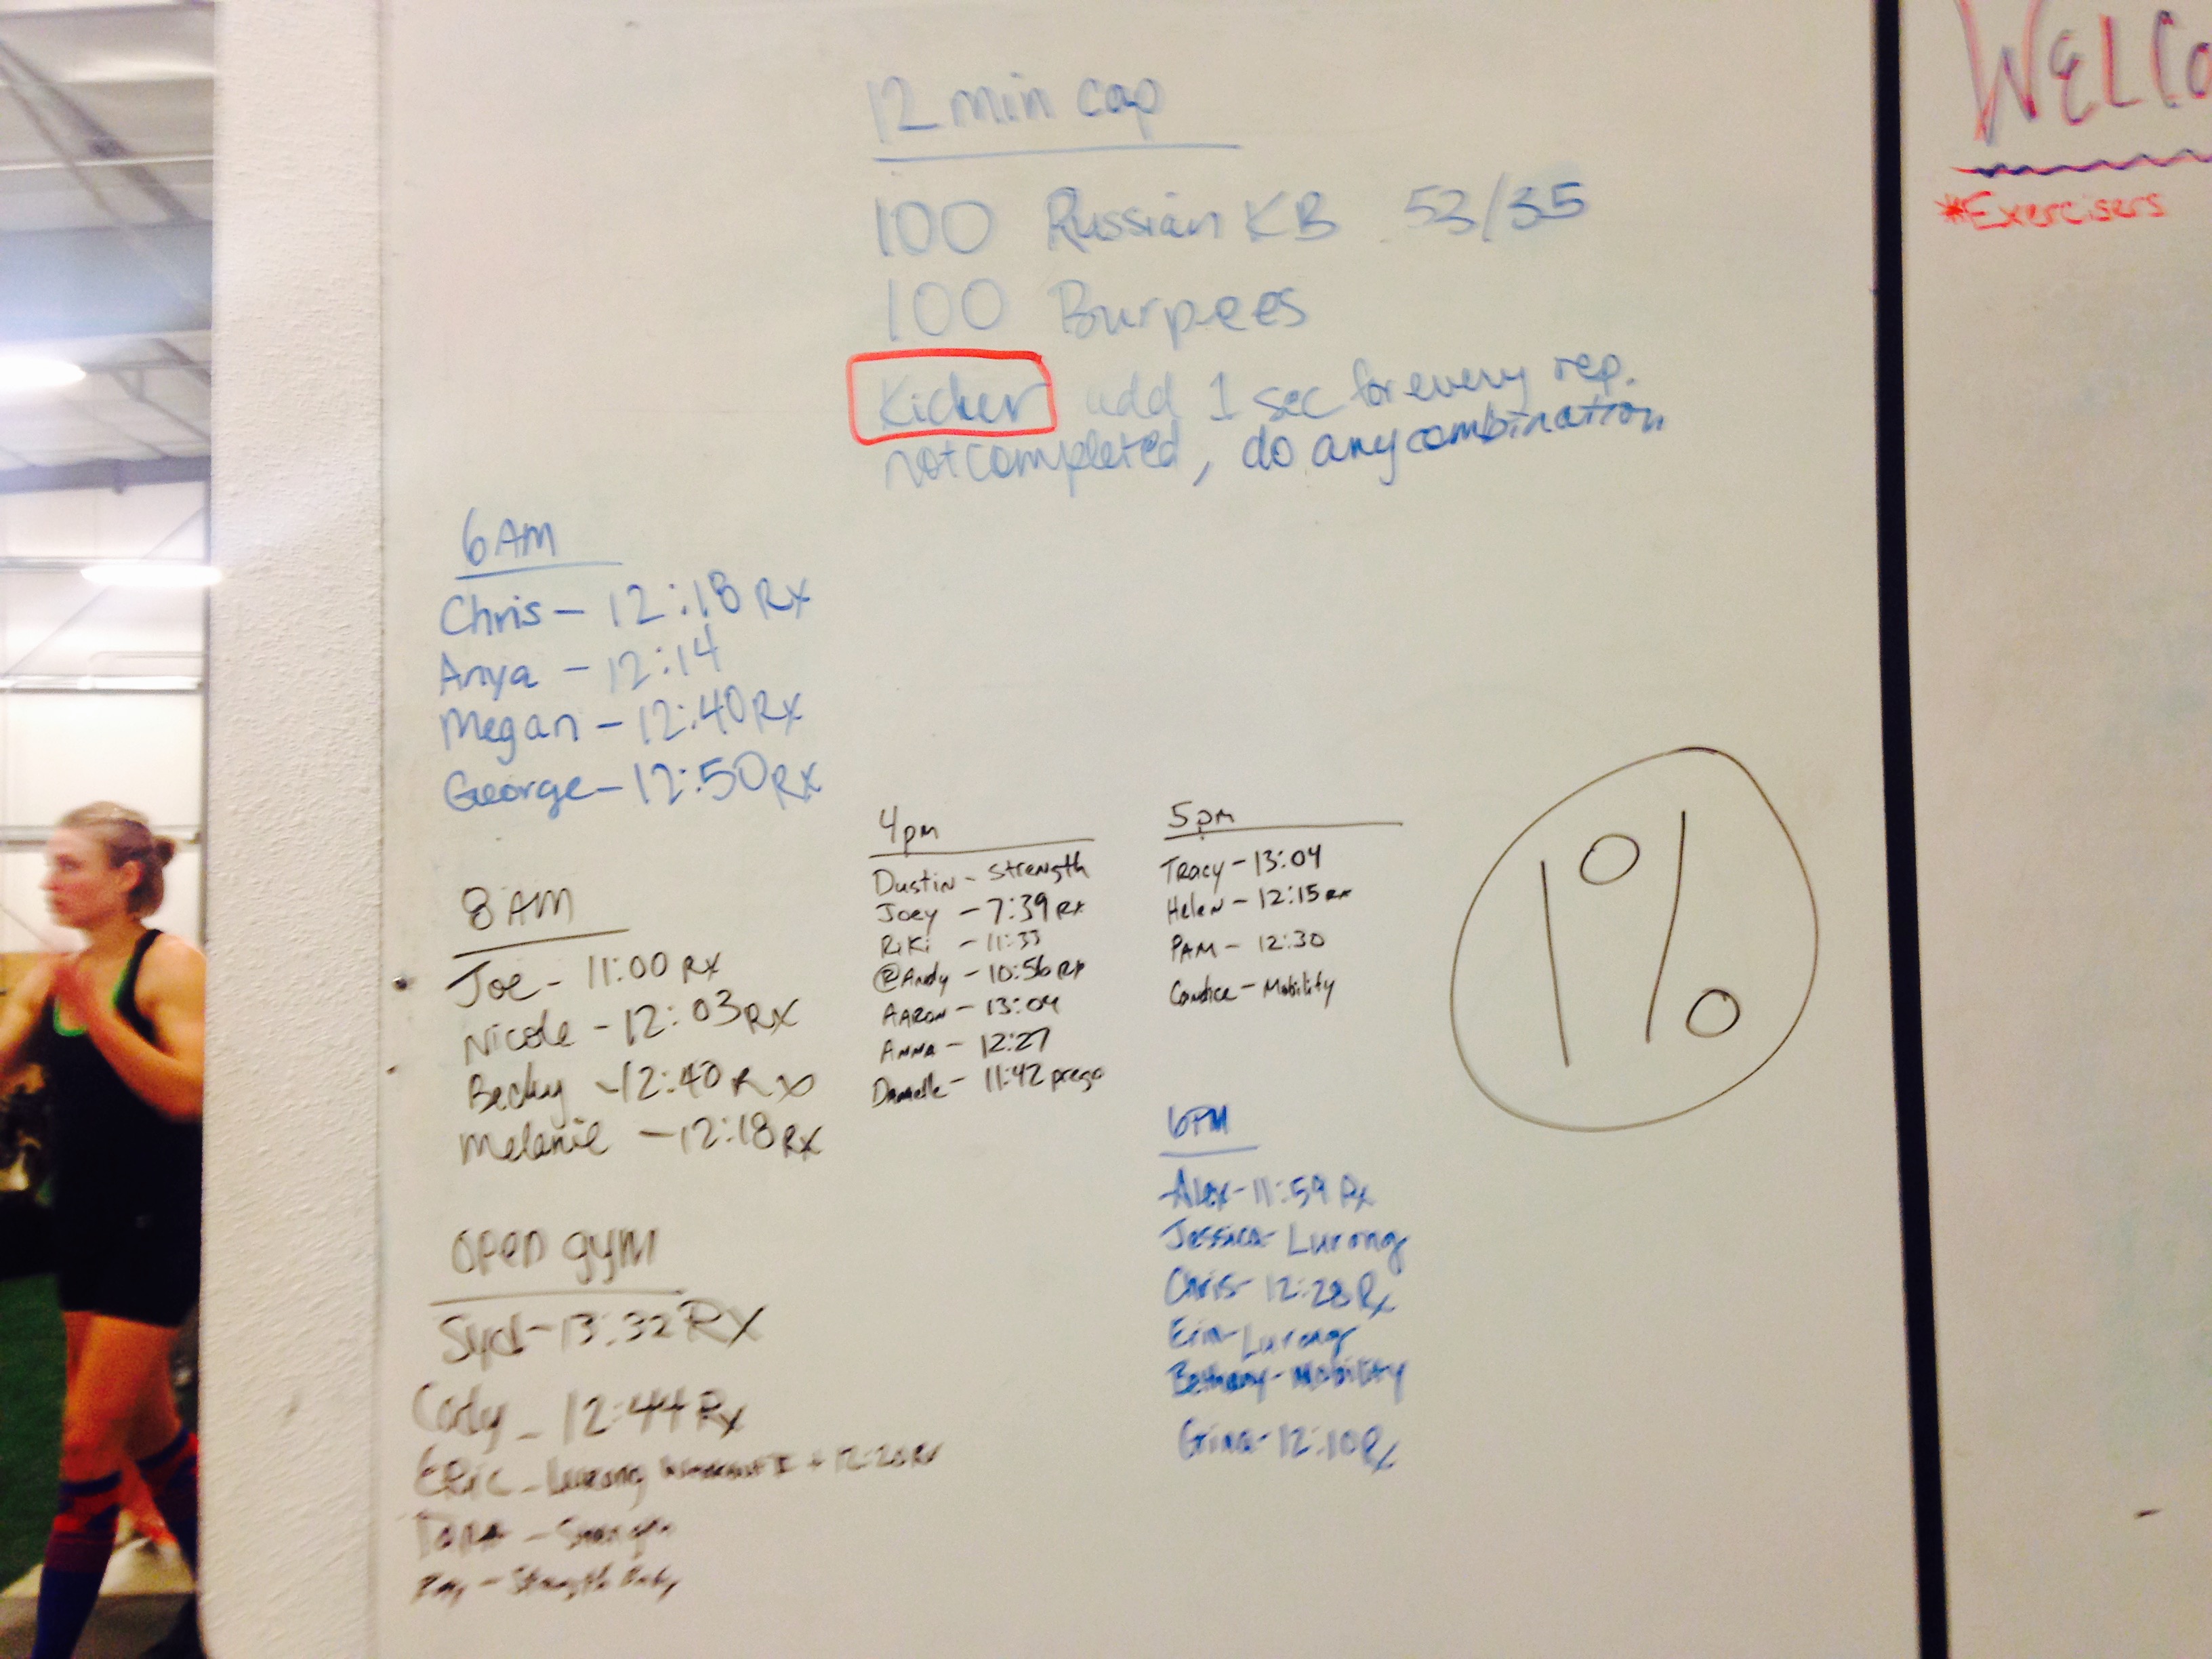 12 min cap
100 Russian KB 53/35
100 Burpees
Kicker add 1 sec for every rep.
not completed, do any combination
6AM
Chris - 12:18 Rx
Anya - 12:14
Megan - 12:40 Rx
George - 12:50 Rx
8AM
Joe - 11:00 Rx
Nicole - 12:03 Rx
Becky - 12:40 Rx
Melanie - 12:18 Rx
open gym
Syd - 13:32 Rx
Cody - 12:44 Rx
Eric - Lurong Workout + 12:20 Rx
- Strength
- Strength
4pm
Dustin - Strength
Joey - 7:39 Rx
Riki - 11:33
@Andy - 10:56 Rx
Aaron - 13:04
Anna - 12:27
Danielle - 11:42 prego
5pm
Tracy - 13:04
Helen - 12:15 Rx
PAM - 12:30
Candice - Mobility
6PM
Alex - 11:59 Rx
Jessica - Lurong
Chris - 12:28 Rx
Erin - Lurong
Bethany - Mobility
Gina - 12:10 Rx
1%
WELCO
*Exercisers